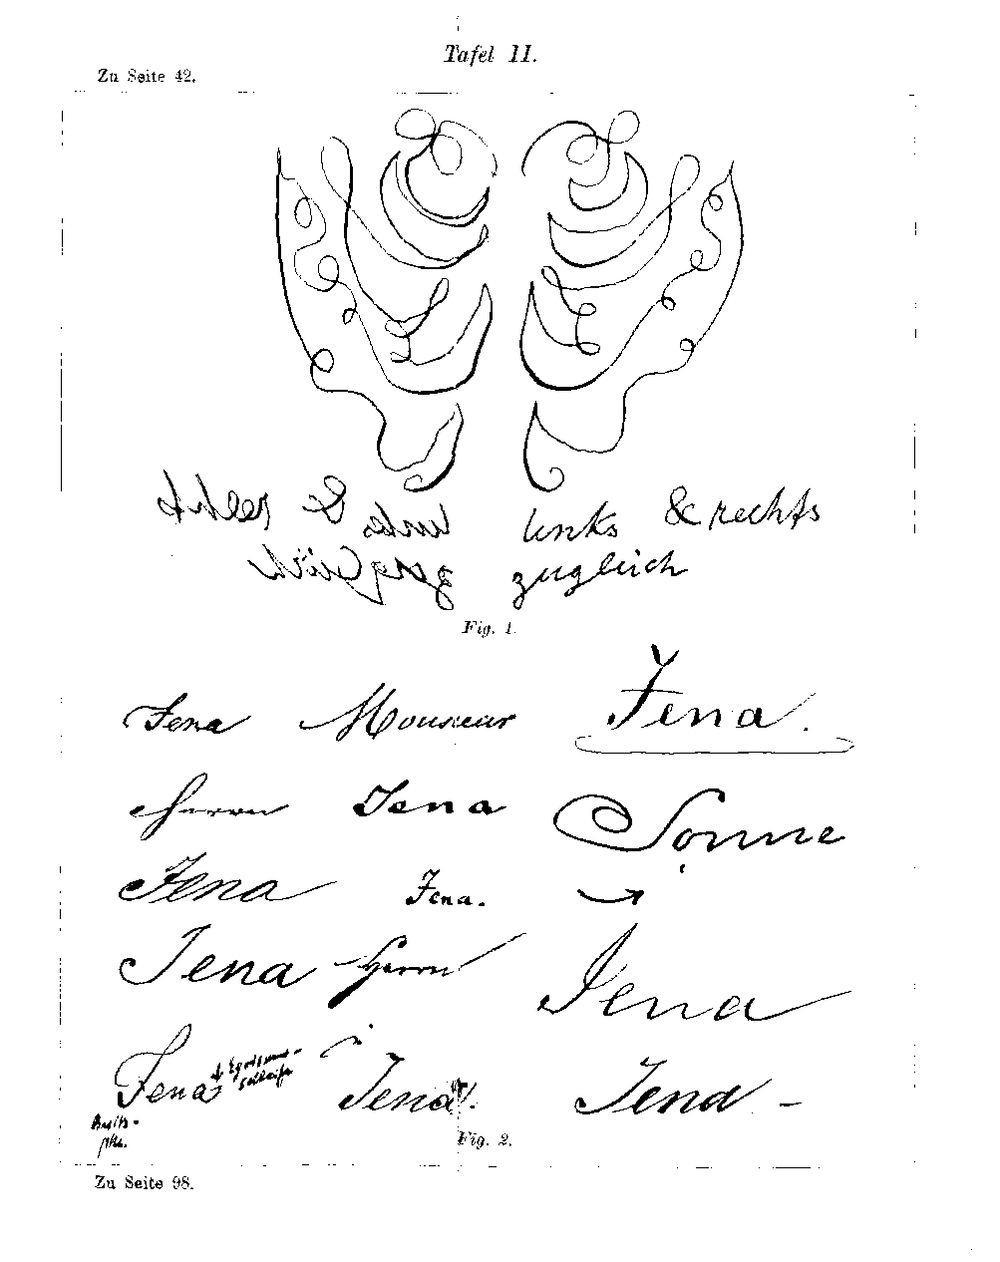 Tafel II.
Zu Seite 42.
links & rechts
links & rechts
zugleich
zugleich
Fig. 1.
Jena Monsieur Jena.
Herrn Jena Sonne
Jena Jena.
Jena Herrn Jena
Jena Jena. Jena -
Fig. 2.
Zu Seite 98.